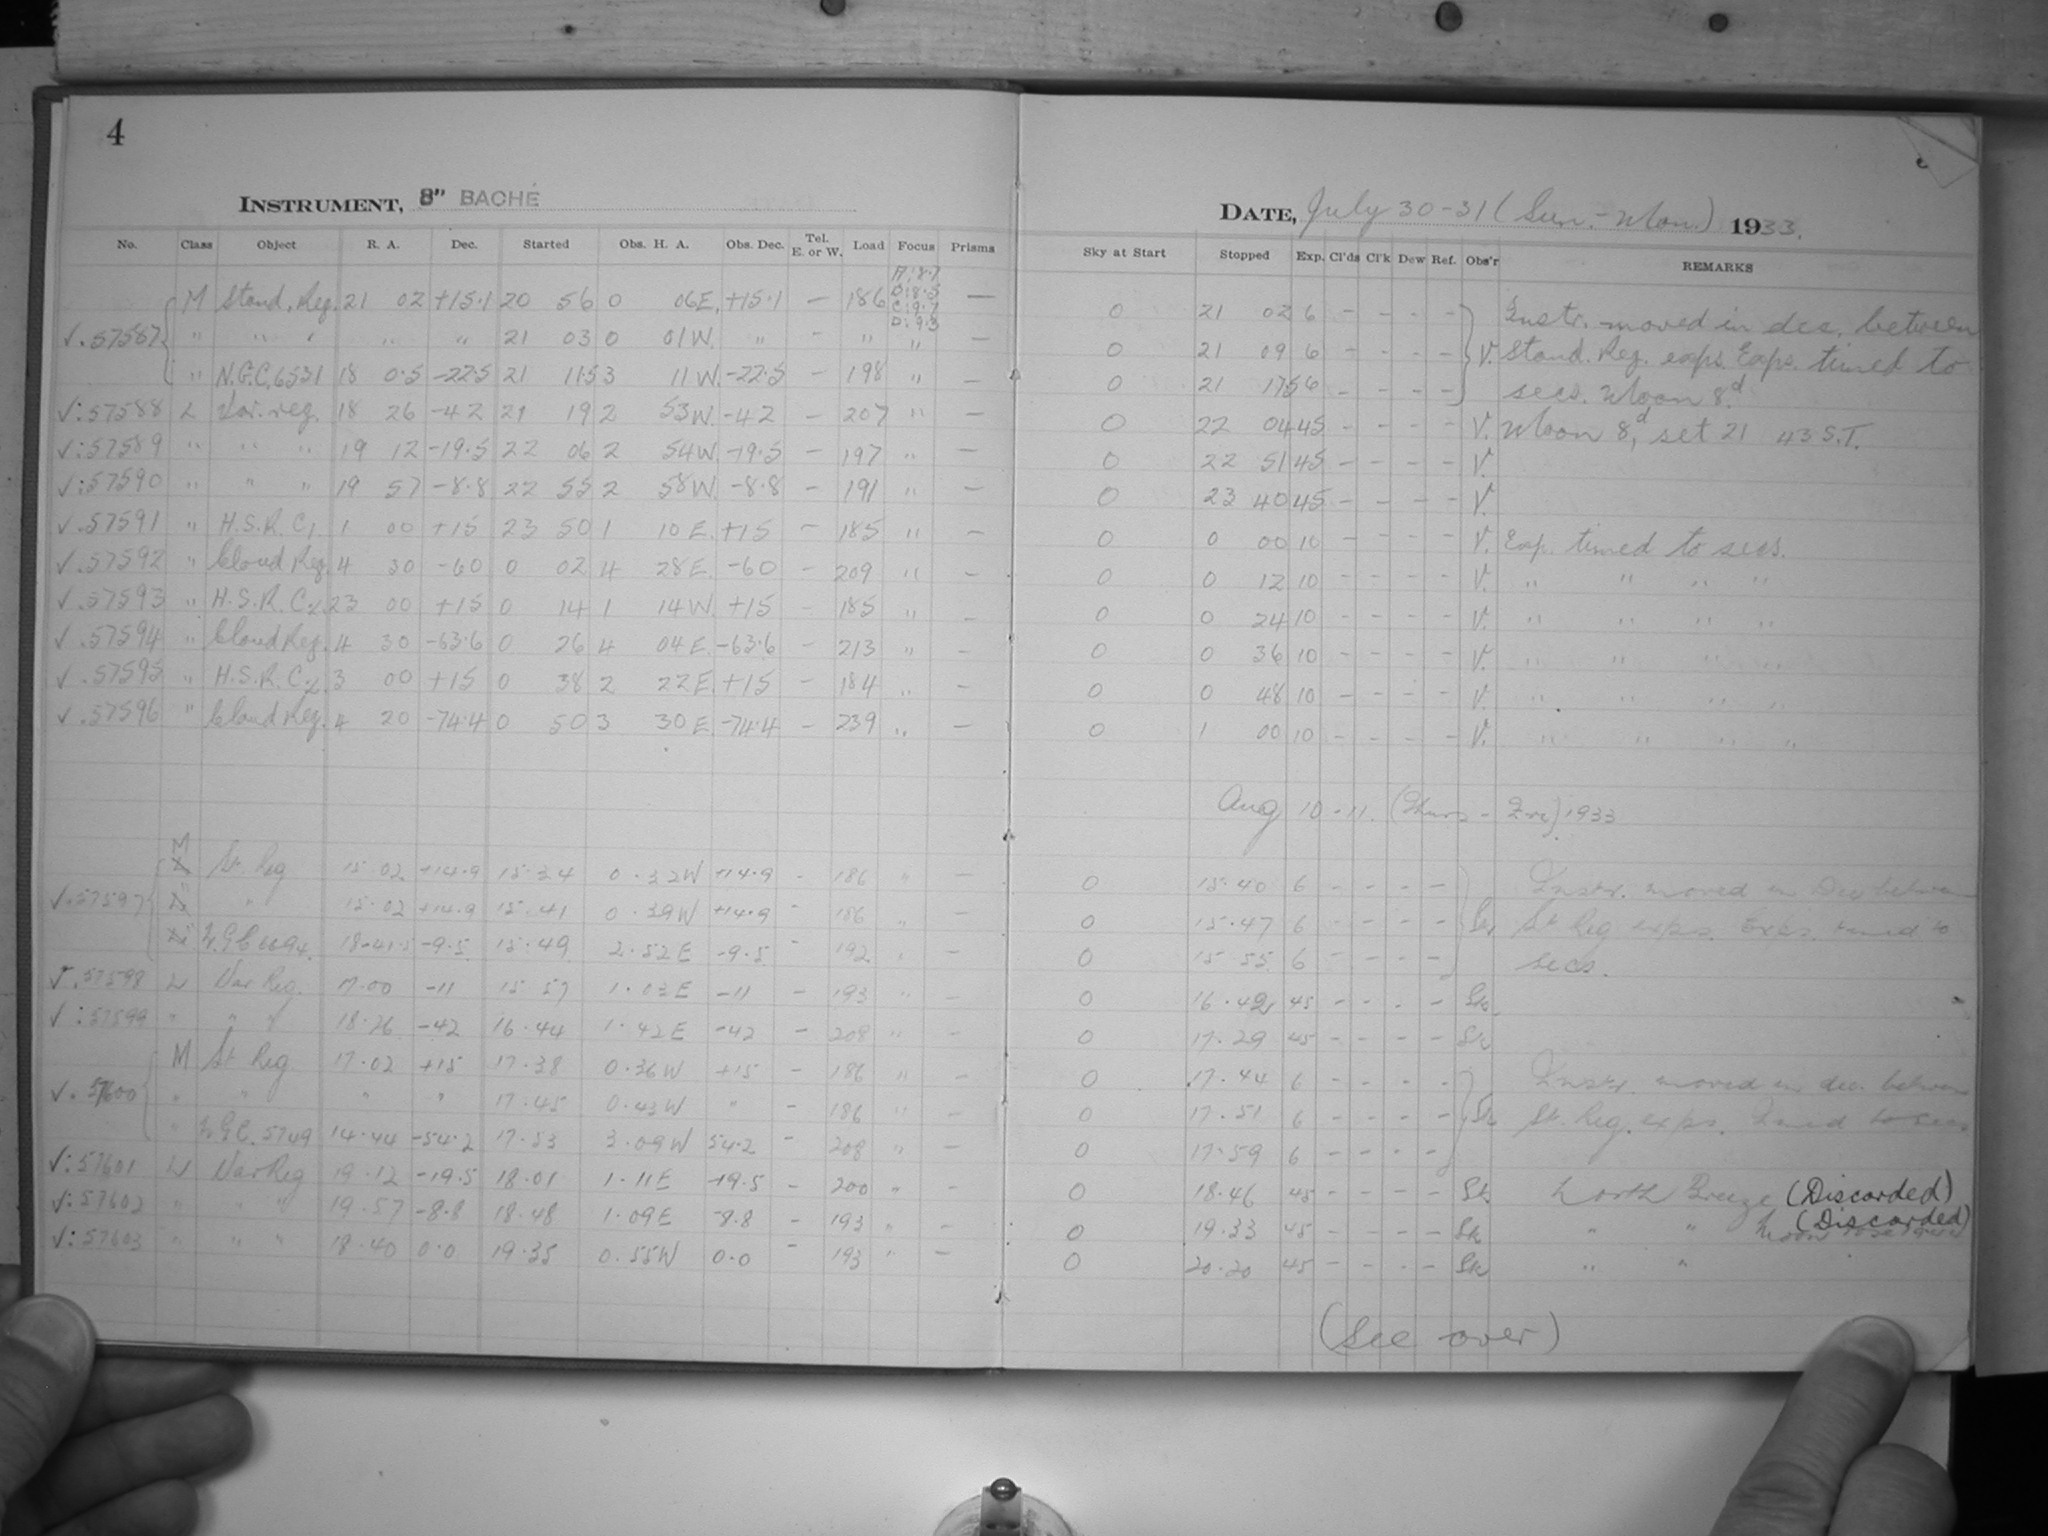 4
INSTRUMENT, 8" BACHÉ
DATE, July 30-31 (Sun.-Mon.) 1933.
No. Class Object R. A. Dec. Started Obs. H. A. Obs. Dec. Tel. E. or W. Load Focus Prisms Sky at Start Stopped Exp. Cl'ds Cl'k Dew Ref. Obs'r REMARKS
M Stand. Reg. 21 02 +15.1 20 56 0 06E. +15.1 - 186 - 0 21 02 6 - - - - Instr. moved in dec. between
√.57587 " " " " " 21 03 0 01W. " - " " - 0 21 09 6 - - - - V. Stand. Reg. exps. Exps. timed to
" N.G.C. 6531 18 0.5 -22.5 21 11.5 3 11W. -22.5 - 198 " - 0 21 17.5 6 - - - - secs. Moon 8.d
√:57588 L Var. reg. 18 26 -42 21 19 2 53W. -42 - 207 " - 0 22 04 45 - - - - V. Moon 8d, set 21 43 S.T.
√:57589 " " " 19 12 -19.5 22 06 2 54W. -19.5 - 197 " - 0 22 51 45 - - - - V.
√:57590 " " " 19 57 -8.8 22 55 2 58W. -8.8 - 191 " - 0 23 40 45 - - - - V.
√.57591 " H.S.R. C1 1 00 +15 23 50 1 10E. +15 - 185 " - 0 0 00 10 - - - - V. Exp. timed to secs.
√.57592 " Cloud Reg. 4 30 -60 0 02 4 28E. -60 - 209 " - 0 0 12 10 - - - - V. " " " "
√.57593 " H.S.R. C2 23 00 +15 0 14 1 14W. +15 - 185 " - 0 0 24 10 - - - - V. " " " "
√.57594 " Cloud Reg. 4 30 -63.6 0 26 4 04E. -63.6 - 213 " - 0 0 36 10 - - - - V. " " " "
√.57595 " H.S.R. C2 3 00 +15 0 38 2 22E. +15 - 184 " - 0 0 48 10 - - - - V. " " " "
√.57596 " Cloud Reg. 4 20 -74.4 0 50 3 30E. -74.4 - 239 " - 0 1 00 10 - - - - V. " " " "
Aug 10-11. (Thurs - Fri) 1933
M St. Reg 15.02 +14.9 15.34 0.32W +14.9 - 186 " - 0 15.40 6 - - - - Instr. moved in Dec between
√.57597 " 15.02 +14.9 15.41 0.39W +14.9 - 186 " - 0 15.47 6 - - - - St Reg exps. Exps. timed to
N.G.C 6694. 18-41.5 -9.5 15.49 2.52E -9.5 - 192 " - 0 15.55 6 - - - - secs.
√.57598 L Var Reg. 17.00 -11 15 57 1.03E -11 - 193 " - 0 16.42 45 - - - -
√:57599 " " " 18.26 -42 16.44 1.42E -42 - 208 " - 0 17.29 45 - - - -
M St Reg 17.02 +15 17.38 0.36W +15 - 186 " - 0 17.44 6 - - - - Instr. moved in dec. between
√.57600 " " " " 17.45 0.43W " - 186 " - 0 17.51 6 - - - - St. Reg. exps. timed to secs
" N.G.C. 5749 14.44 -54.2 17.53 3.09W 54.2 - 208 " - 0 17.59 6 - - - -
√:57601 L Var Reg 19.12 -19.5 18.01 1.11E -19.5 - 200 " - 0 18.46 45 - - - - North Breeze (Discarded)
√:57602 " " " 19.57 -8.8 18.48 1.09E -8.8 - 193 " - 0 19.33 45 - - - - " " (Discarded)
√:57603 " " " 18.40 0.0 19.35 0.55W 0.0 - 193 " - 0 20.20 45 - - - - " "
(See over)